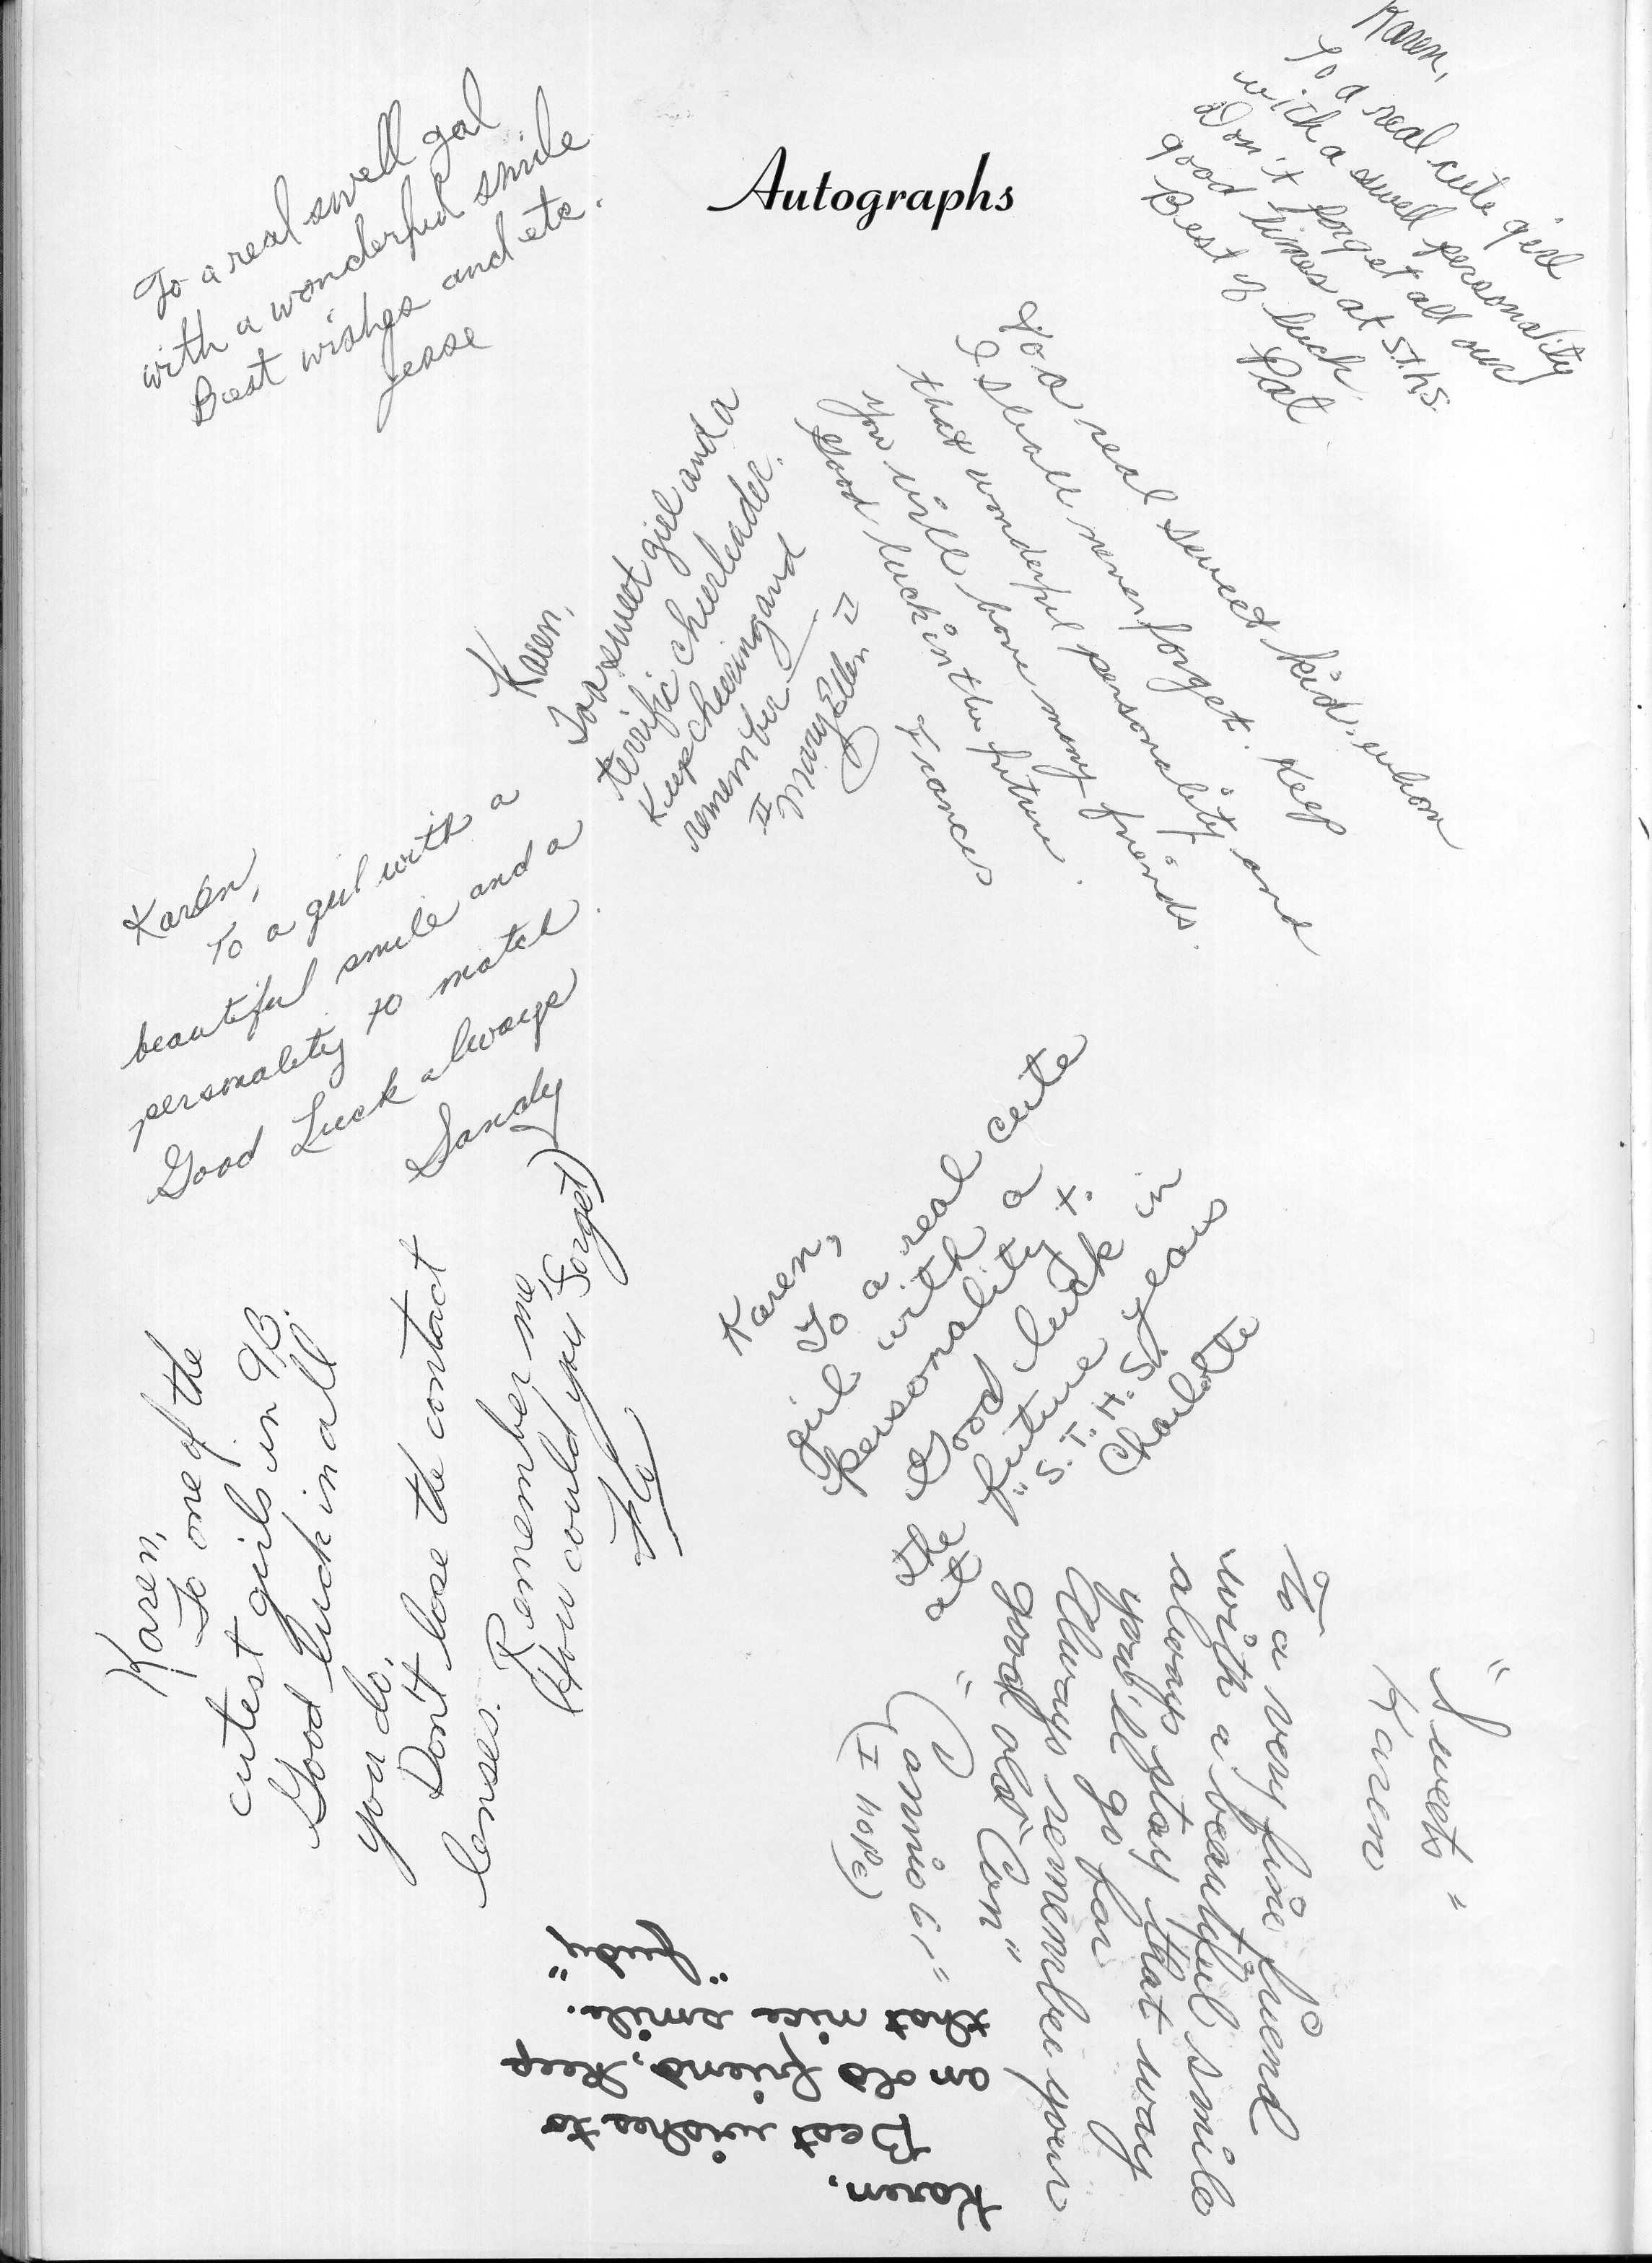 Autographs
To a real swell gal
with a wonderful smile
Best wishes and etc.
Jesse
Karen,
To a real cute girl
with a swell personality
Don't forget all our
good times at S.T.H.S.
Best of luck
Pat
To a real sweet kid, whom
I shall never forget. Keep
that wonderful personality and
you will have many friends.
Good luck in the future.
Frances
Karen,
To a sweet girl and a
terrific cheerleader.
Keep cheering and
remember
II Mary Ellen II
Karen,
To a girl with a
beautiful smile and a
personality to match.
Good Luck always
Sandy
Karen,
To a real cute
girl with a
personality +.
Good luck in
the future years
at "S.T.H.S."
Charlotte
Karen,
To one of the
cutest girls in 9B.
Good luck in all
you do.
Don't lose the contact
lenses. Remember me,
(How could you forget)
"Sweets"
Karen
To a very fine friend
with a beautiful smile
always stay that way
you'll go far
Always remember your
good old "Con"
(I hope)
Karen,
Best wishes to
an old friend, keep
that nice smile.
"Judy"